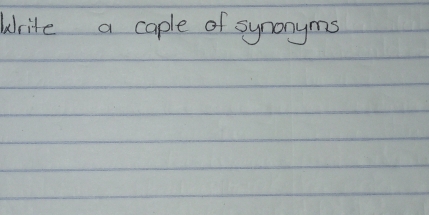 Write a caple of synonyms